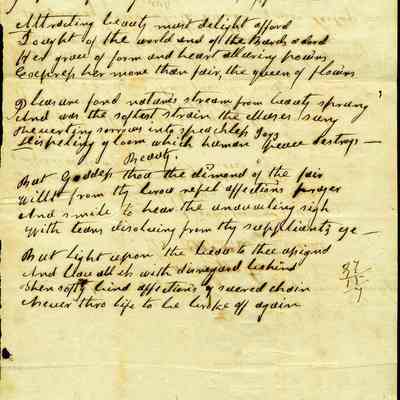 Attracting beauty must delight afford
Sought of the world and of the Bards adord
Her grace of form and heart alluring powers
Express her more than fair, the queen of flowers
Pleasure fond natures stream from beauty sprang
And was the softest strain the Muses sang
Reverting sorrows into speachless Joys
Dispeling gloom which human peace destroys —
Beauty.
But Goddess thou the dimond of the fair
Willt from thy brow repel affections prayer
And smile to hear the unavailing sigh
With tears disolving from thy suppliants eye —
But light upon the beau to thee asignd
And leave all else with disregard behind
Then softly bind affections sacred chain
Never thro life to be broke off again
37
11
7